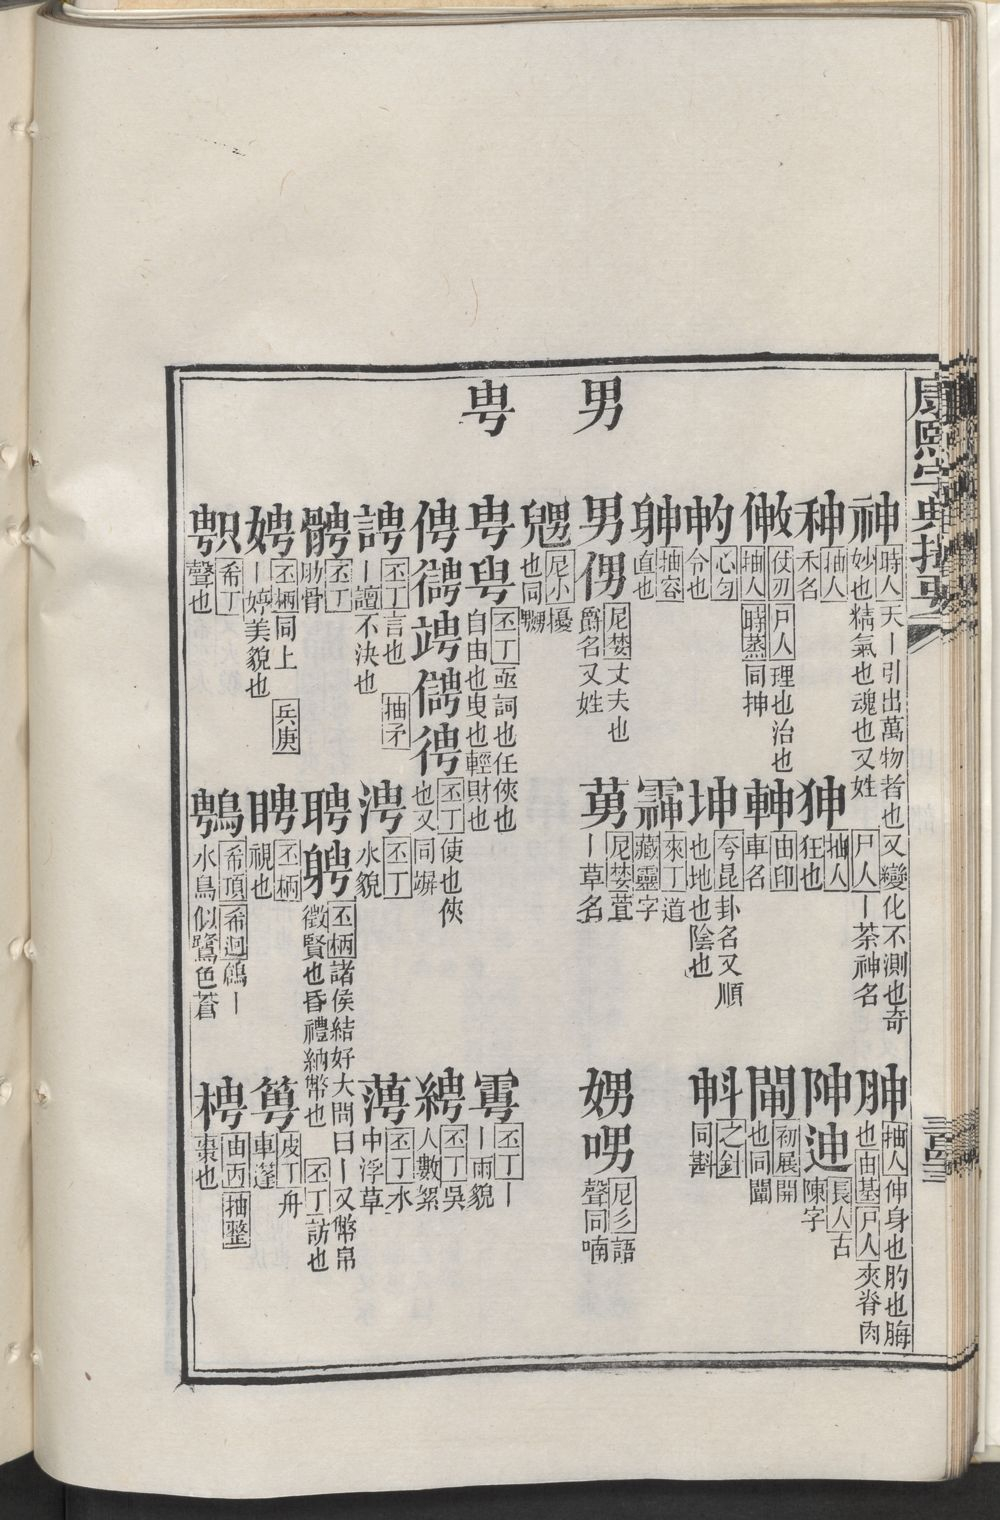 康熙字典撮要
神 時人 天丨引出萬物者也又變化不測也奇
妙也精氣也魂也又姓 尸人 丨荼神名
胂 抽人 伸身也肑也脢
也 由基 尸人 夾脊肉
秞 抽人
禾名
狆 抽人
狂也
陳 長人 古
陳字
仗刃 尸人 理也治也
抽人 時蒸 同抻
由印
車名
初展 開
也同闡
心匀
令也
坤 夸昆 卦名又順
也地也陰也
之針
同斟
抽容
直也
來丁 道
藏靈字
男
男 尼婪 丈夫也
爵名又姓
莮 尼婪 萱
丨草名
娚 喃 尼彡 語
聲同喃
尼小 擾
也同嬲
甹
甹 丕丁 亟詞也任俠也
自由也曳也輕財也
丕丁 丨
丨雨貌
俜 丕丁 使也俠
也又同竮
丕丁 吳
人數絮
丕丁 言也 抽矛
丨譠不決也
涄 丕丁
水貌
丕丁 水
中浮草
丕丁
肋骨
聘 丕柄 諸侯結好大問曰丨又幣帛
徵賢也昏禮納幣也 丕丁 訪也
娉 丕柄 同上 兵庚
丨婷美貌也
丕柄
視也
皮丁 舟
車篷
希丁
聲也
希頂 希迥 鴿丨
水鳥似鷺色蒼
梬 由丙 抽整
棗也